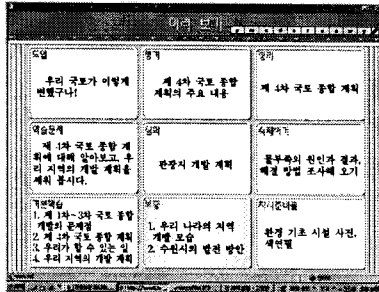 미리 보기
도입
우리 국토가 이렇게
변했구나!
전개
제 4차 국토 종합
계획의 주요 내용
정리
제 4차 국토 종합 계획
학습문제
제 4차 국토 종합 계
획에 대해 알아보고, 우
리 지역의 개발 계획을
세워 봅시다.
심화
관광지 개발 계획
물부족의 원인과 결과,
해결 방법 조사해 오기
개별학습
1. 제 1차~3차 국토 종합
개발의 문제점
2. 제 4차 국토 종합 계획
3. 우리가 할 수 있는 일
4. 우리 지역의 개발 계획
보충
1. 우리 나라의 지역
개발 모습
2. 수원시의 발전 방안
차시준비물
환경 기초 시설 사진,
색연필